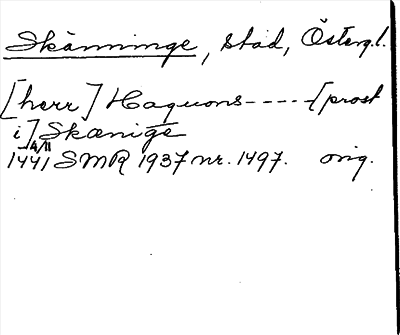 Skänninge, stad, Östergl.
[herr] Haquons - - - - [prost
i] Skænige
1441 4/11 SMR 1937 nr. 1497. orig.